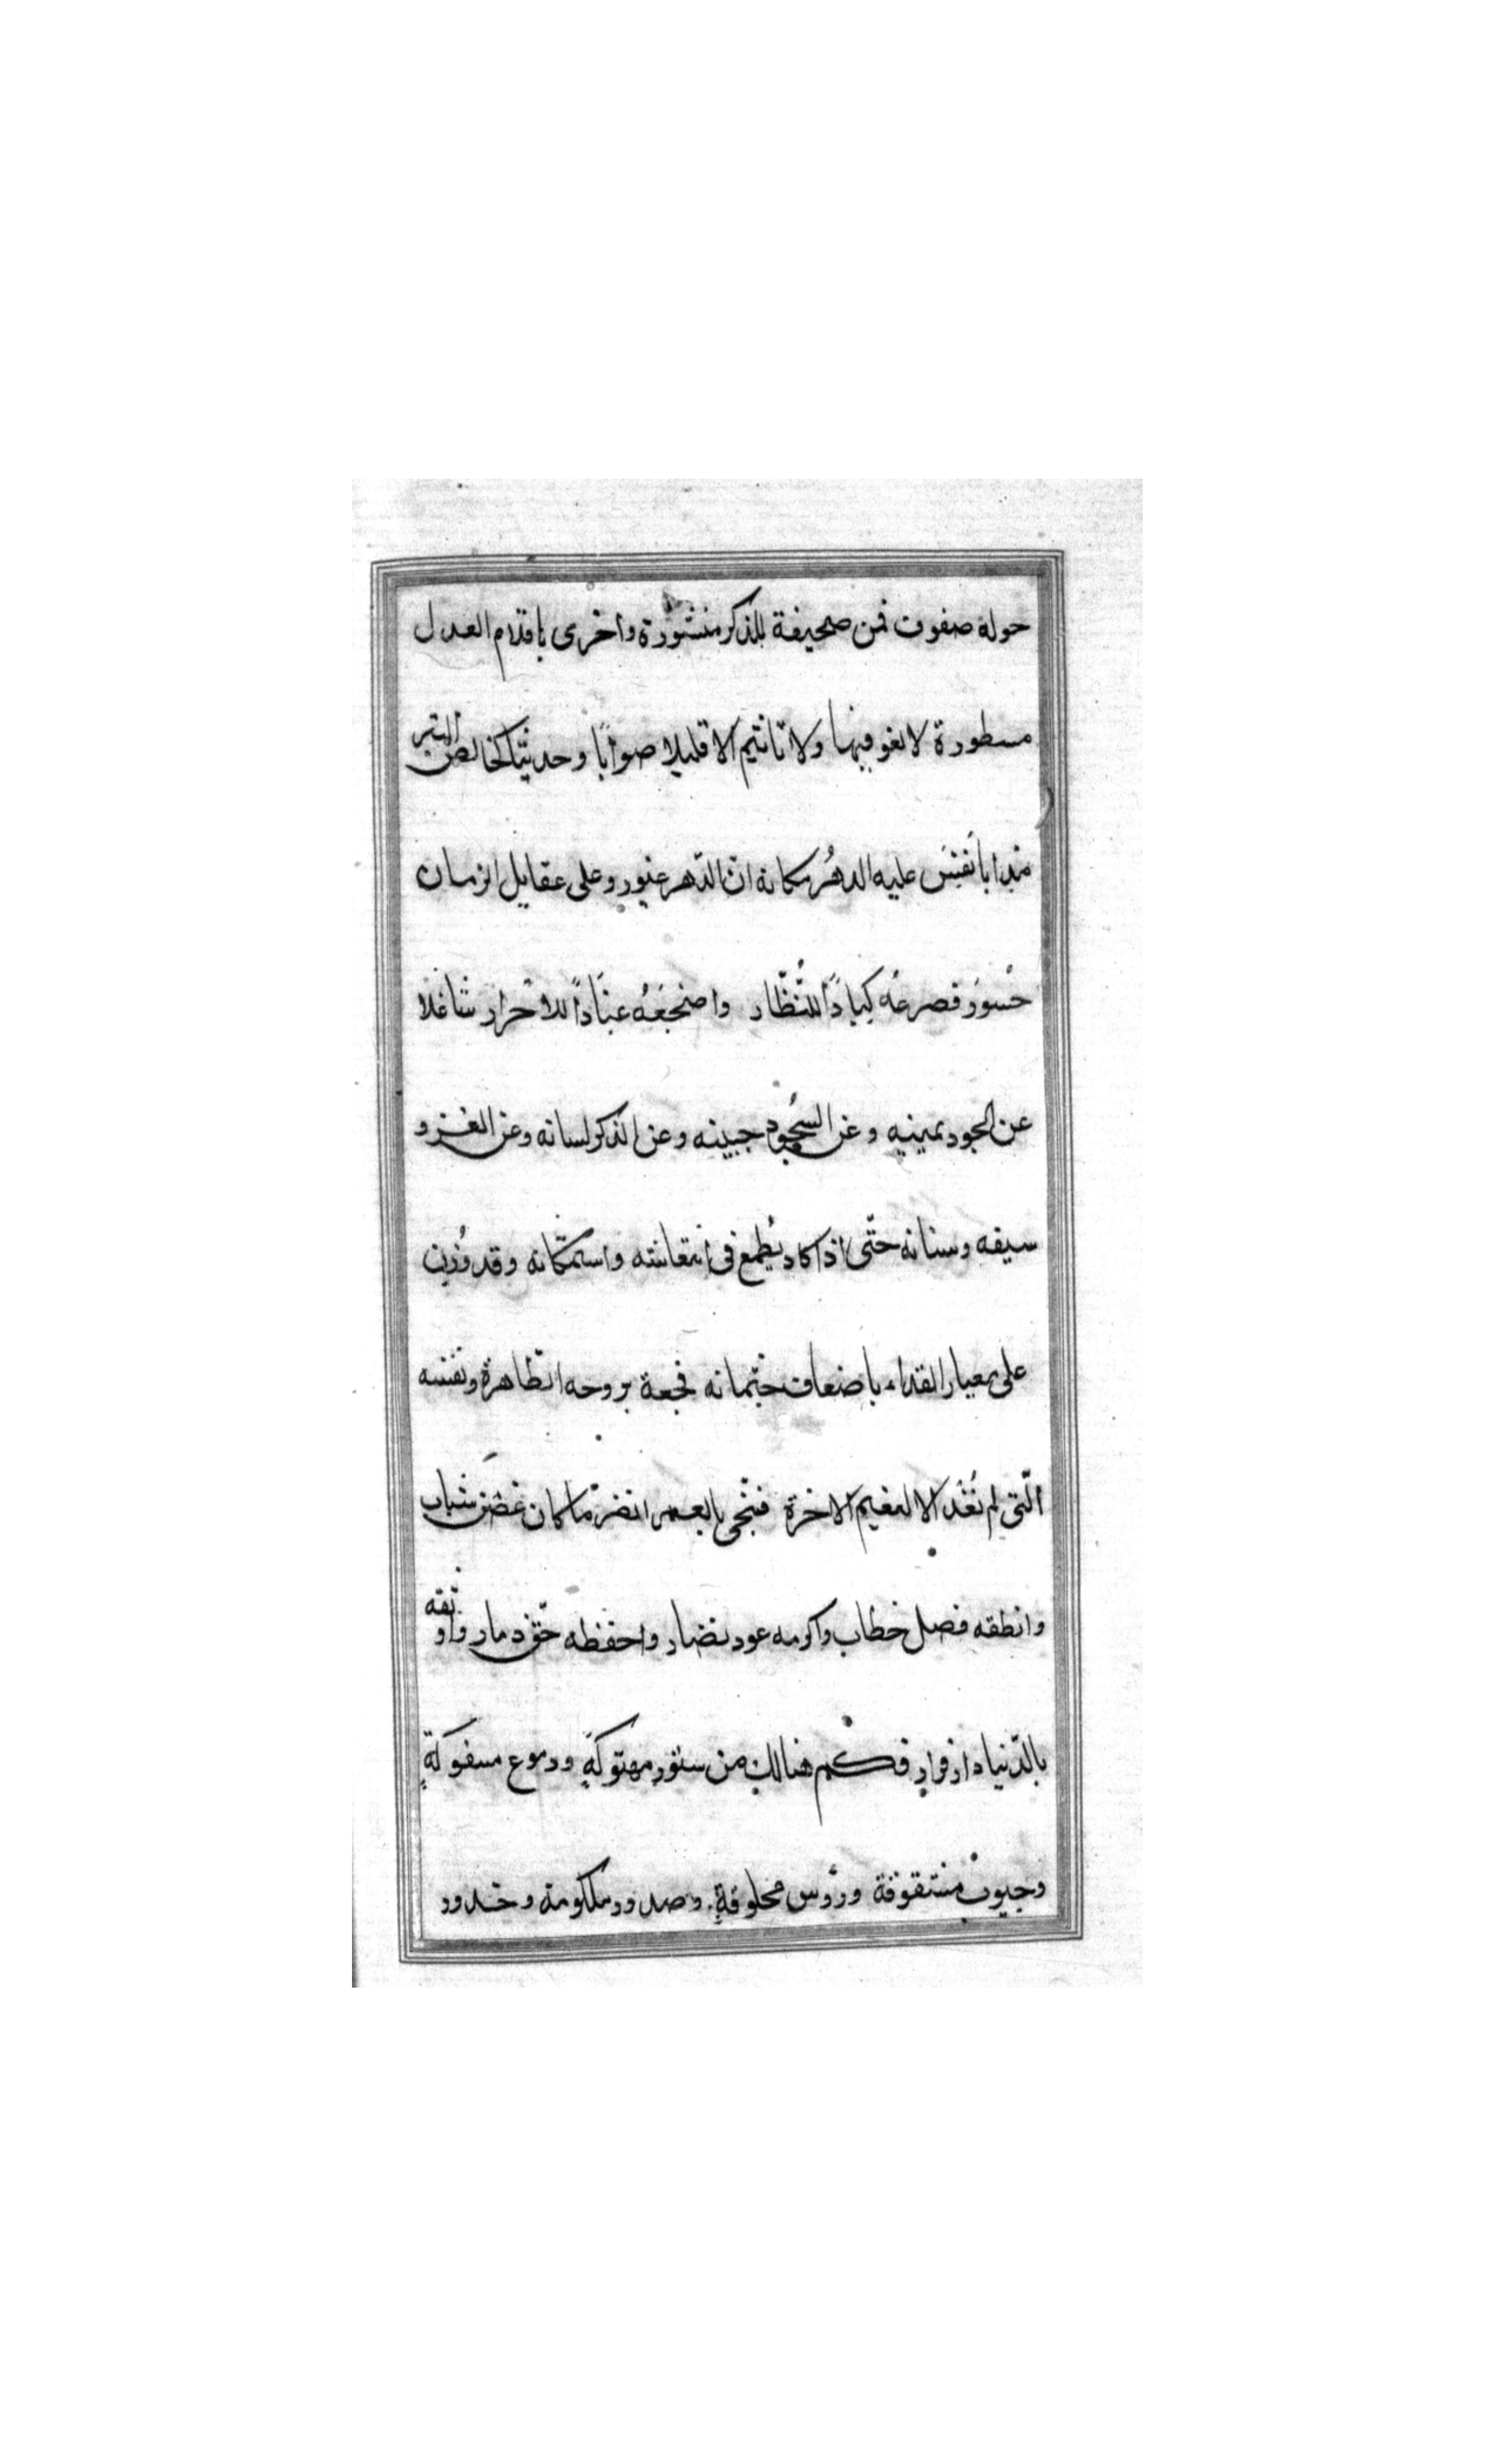 حوله صفوت فمن صحيفة للذكر منشورة واخرى باقلام العدل
مسطورة لا لغو فيها ولا تاثيم الا قليلا صوابًا وحديثًا كخالص التبر
مذابا نَفِسَ عليه الدهرُ مكانه انّ الدّهر غيور وعلى عقايل الزمان
جسور فصرعُه كيادًا للنُّظّار واضجعَهُ عنادًا للاحرار شاغلا
عن الجود يمينه وعن السّجُود جبينه وعن الذكر لسانه وعن الغزو
سيفه وسنانه حتّى اذا كاد يُطمع في انتعاشه واستمكانه وقد وُزِن
على معيار الفداء باضعاف جثمانه فجعة بروحه الطّاهرة ونفسه
الّتي لم تُغْذ الا لنعيم الاخرة انضر ما كان غصن شباب
وانطقه فصل خطاب واكرمه عود نضار واحفظه حقّ ذمار واوثقه
بالدّنيا دار قرار فكم هنالك من ستور مهتوكةٍ ودموع مسفوكةٍ
وجيوب مشقوقة ورؤس محلوقةٍ وصدور ملكومة وخدود